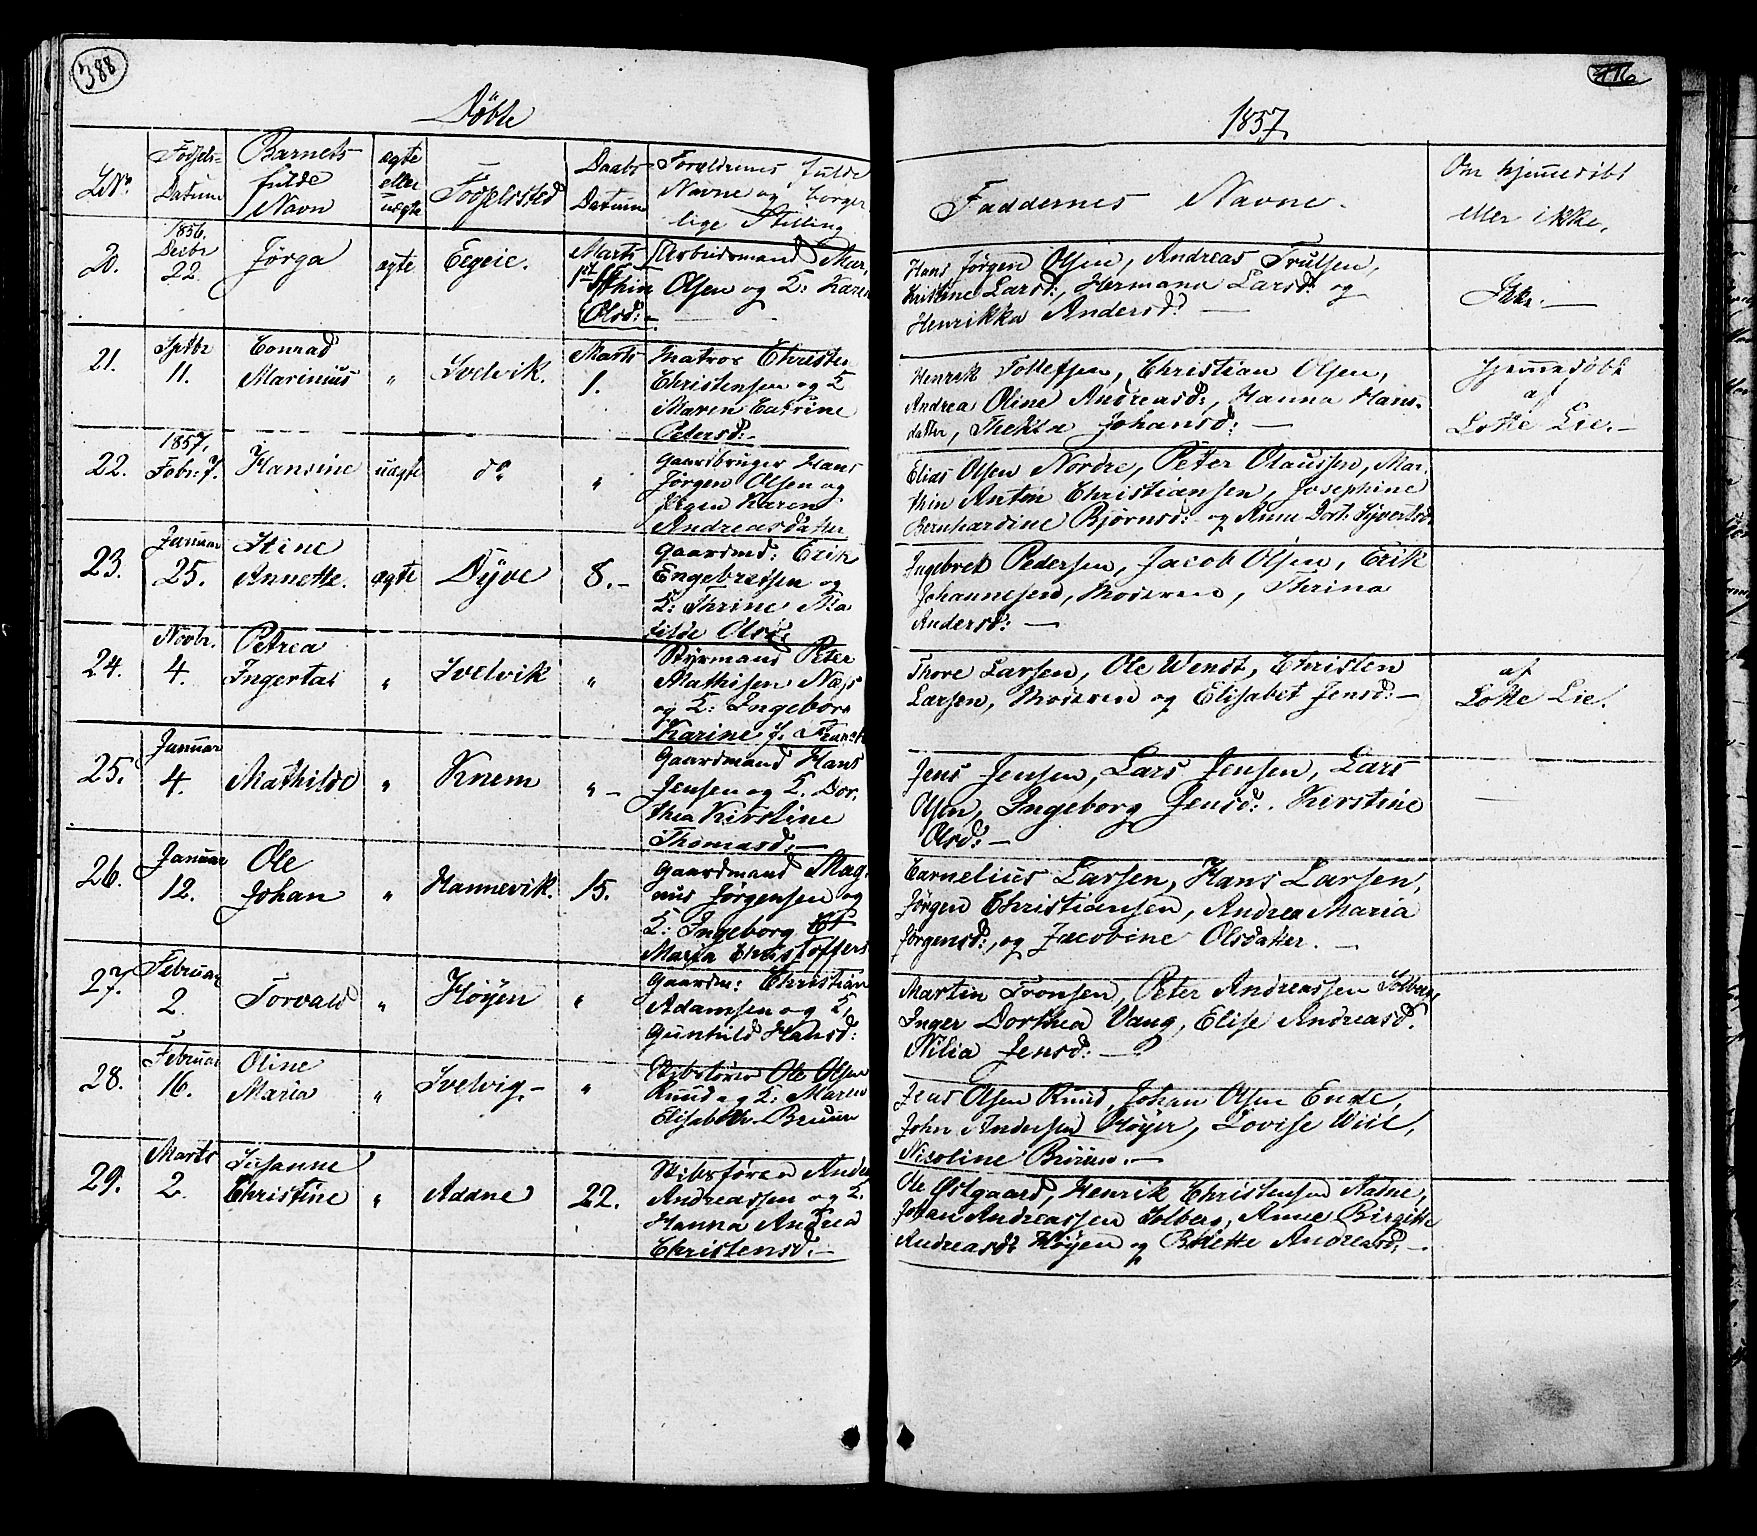 388
Døbte
LNo.
Fødsels-
Datum
Barnets
fulde
Navn
ægte
eller
uægte
Fødselssted
Daabs
Datum
Forældrenes fulde
Navne og borger
lige Stilling
20.
1856.
Decbr
22.
Jørga
ægte
Marts
1st
Arbeidsmand Mar,
thin Olsen og K: Karen
Olsd:
21.
Sptbr
11.
Conrad
Marinius
"
Svelvik.
Marts
1.
Matros Christen
Christensen og K
Maren Catrine
Petersd:
22.
1857.
Febr: 7.
Hansine
uægte
do
"
Gaardbruger Hans
Jørgen Olsen og
Pigen Karen
Andreasdatter
23.
Januar
25.
Stine
Annette.
ægte
Dyve
8.
Gaardmd: Erik
Engebretsen og
K: Thrine Ma
tilde Olsd:
24.
Novbr.
4.
Petrea
Ingertai
"
Svelvik
"
Styrmand Peter
Mathisen Næs
og K: Ingebor
Karine f.
25.
Januar
4.
Mathilde
"
Knem
"
Gaardmand Hans
Jensen og K. Dor,
thea Kirstine
Thomasd.
26.
Januar
12.
Ole
Johan
"
Hannevik.
15.
Gaardmand Mag,
nus Jørgensen og
K: Ingeborg
Maria Christoffers
27.
Februar
2.
Torvald
"
Høyen
"
Gaardm: Christian
Adamsen og K,
Gunhild Hansd:
28.
Februar
16.
Oline
Maria
"
Svelvig.
"
Skibsfører Ole Olsen
Ruud og K: Maren
Elisabeth Bruun
29.
Marts
2.
Susanne
Christine
"
Aadne
22.
Skibsføren Andr
Andreassen og K.
Hanna Andrea
Christensd.
1857
Faddernes Navne.
Om hjemmedøbt
eller ikke.
Hans Jørgen Olsen, Andreas Trulsen,
Kristine Larsd:, Hermana Larsd: og
Henrikka Andersd:
Ikke.
Henrik Tollefsen, Christian Olsen,
Andrea Oline Andreasd:, Hanna Hans-
datter, Thekla Johansd:
Hjemmedøbt
af
Lotte Lie.
Elias Olsen Nordre, Peter Olaussen, Mar,
thin Anton Christiansen, Josephine
Bernhardine Bjørnsd: og Anne Dort: Syvertsd.
Ingebret Pedersen, Jacob Olsen, Erik
Johannesen, Moderen, Thrina
Andersd:
Thore Larsen, Ole Wendt, Christen
Larsen, Moderen og Elisabet Jensd:
af
Lotte Lie.
Jens Jensen, Lars Jensen, Lars
Olsen, Ingeborg Jensd: Kirstine
Olsd:
Carnelius Larsen, Hans Larsen,
Jørgen Christiansen, Andrea Maria
Jørgensd:, og Jacobine Olsdatter.
Martin Tronsen, Peter Andreassen Solberg,
Inger Dorthea Vang, Elise Andreasd.
Nilia Jensd:
Jens Olsen Ruud, Johan Olsen Ende,
John Andersen Høyer, Lovise Wiil,
Nicoline Bruun.
Ole Østgaard, Henrik Christensen Aadne,
Johan Andreassen Solberg, Anne Birgitte
Andreasd: Høyen og Andreasd.